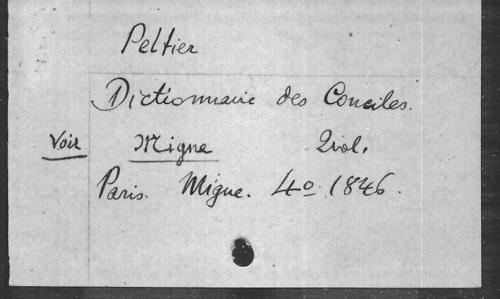 Peltier
Dictionnaire des Conciles.
Voir Migne 2 vol.
Paris. Migne. 4o. 1846.